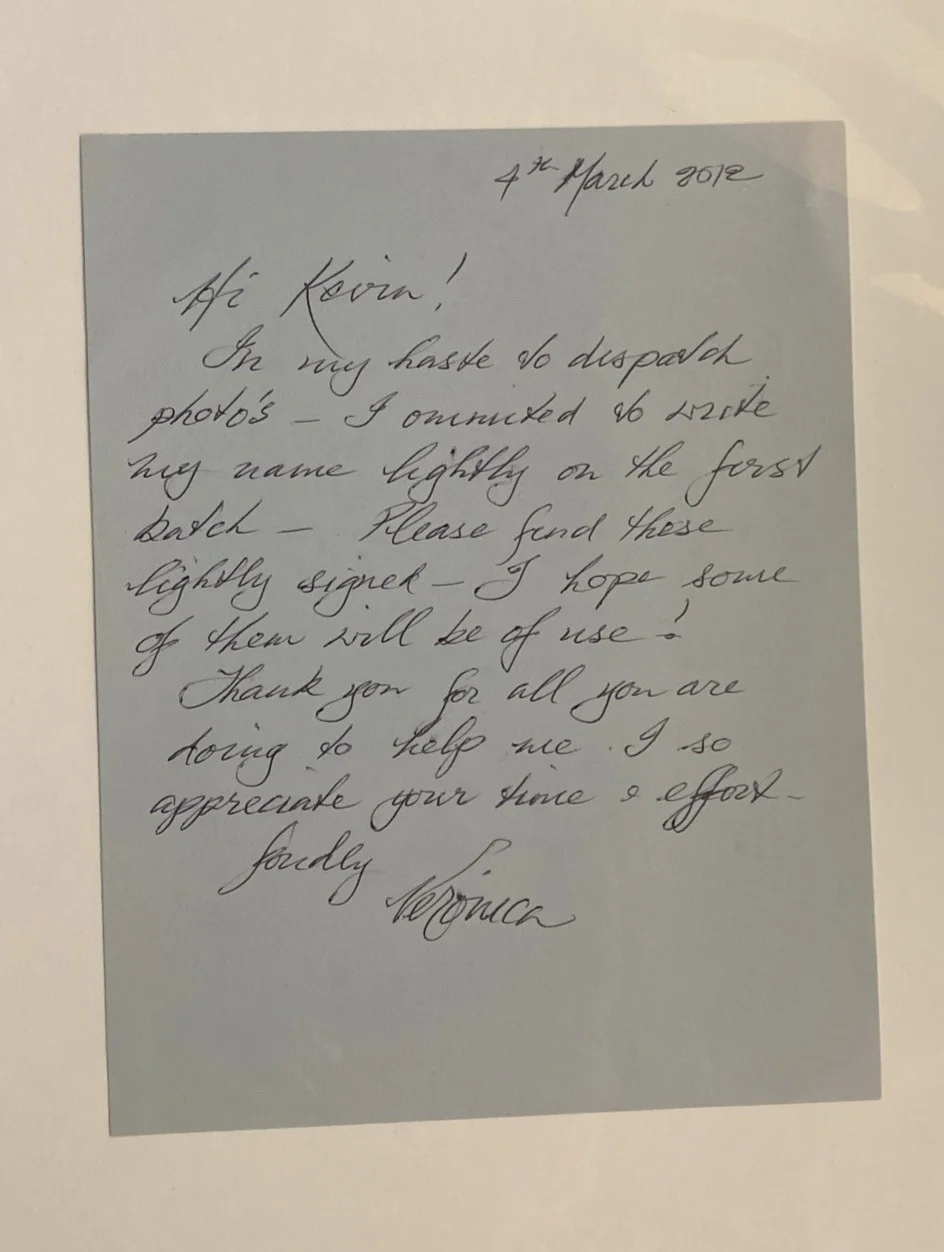 4th March 2012
Hi Kevin!
In my haste to dispatch
photo's – I ommited to write
my name lightly on the first
batch – Please find these
lightly signed – I hope some
of them will be of use!
Thank you for all you are
doing to help me. I so
appreciate your time & effort –
fondly
Veronica